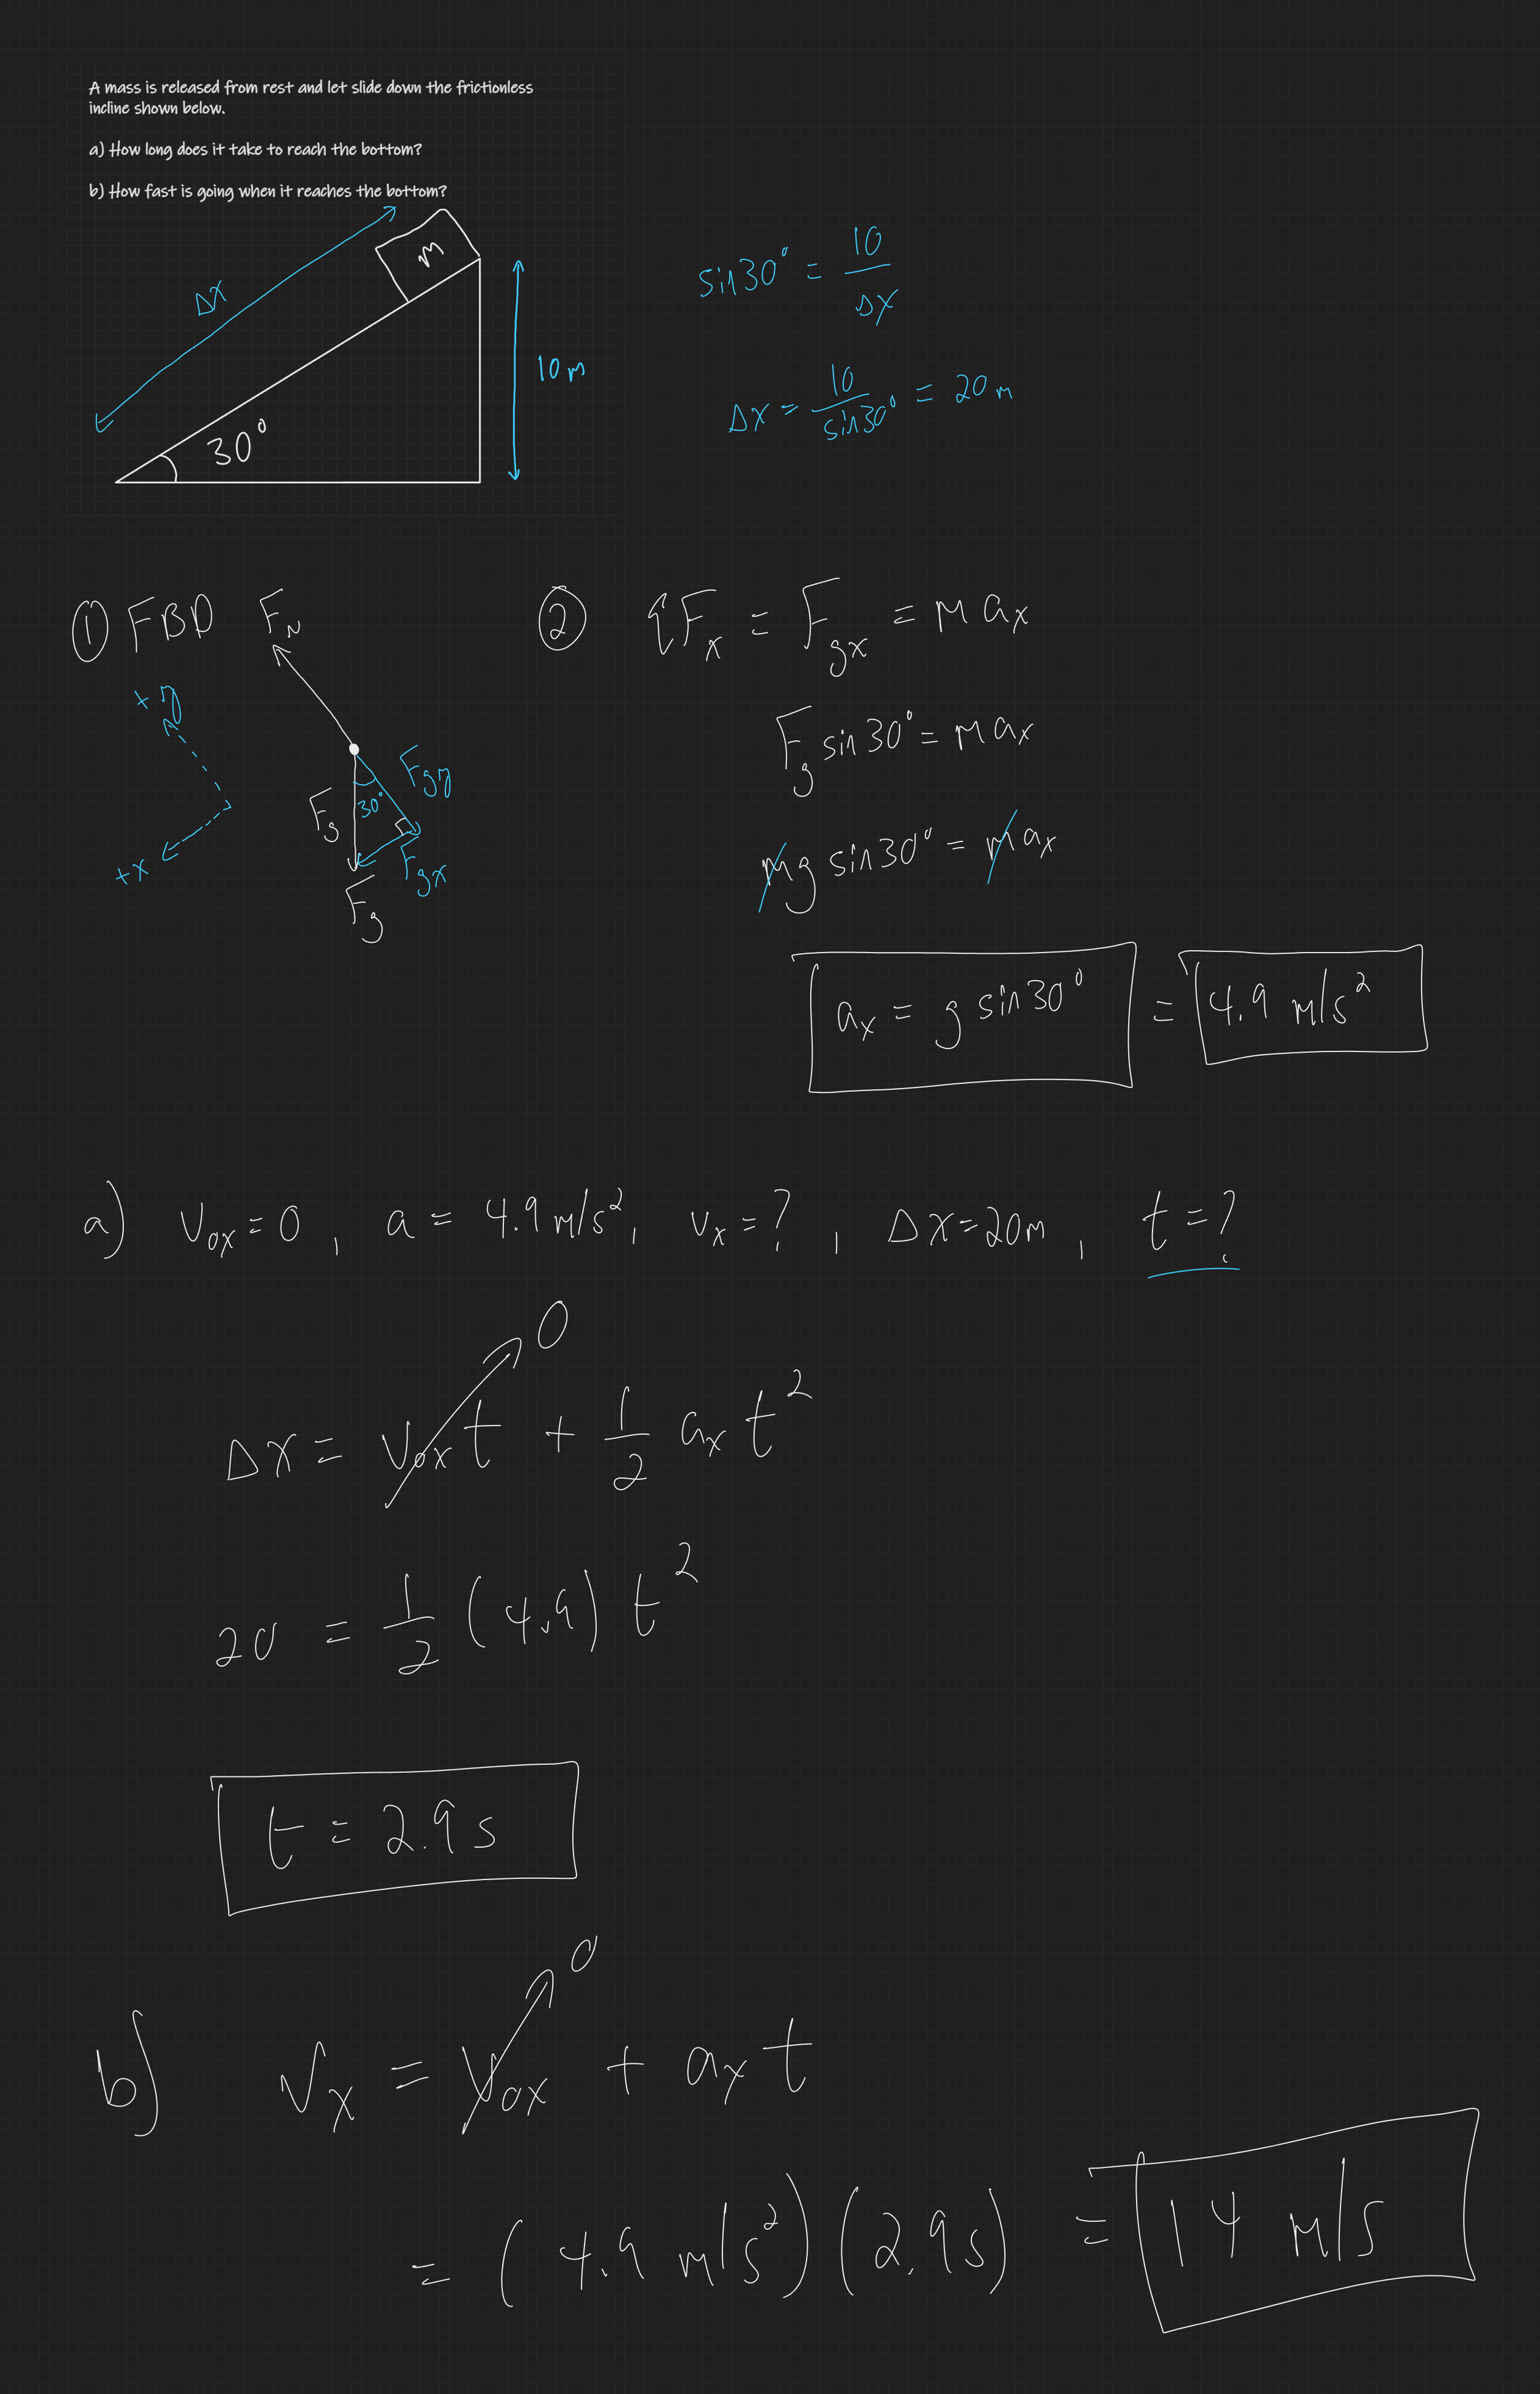 A mass is released from rest and let slide down the frictionless
incline shown below.
a) How long does it take to reach the bottom?
b) How fast is going when it reaches the bottom?
Δx
m
10 m
30°
sin30° = 10/Δx
Δx = 10/sin30° = 20 m
① FBD
F_N
+y
+x
F_g
30°
F_gy
F_gx
F_g
② ΣF_x = F_gx = m a_x
F_g sin30° = m a_x
mg sin30° = m a_x
a_x = g sin30° = 4.9 m/s²
a) v_ox = 0 , a = 4.9 m/s² , v_x = ? , Δx = 20m , t = ?
0
Δx = v_ox t + 1/2 a_x t²
20 = 1/2 (4.9) t²
t = 2.9 s
0
b) v_x = v_ox + a_x t
= (4.9 m/s²)(2.9 s) = 14 m/s